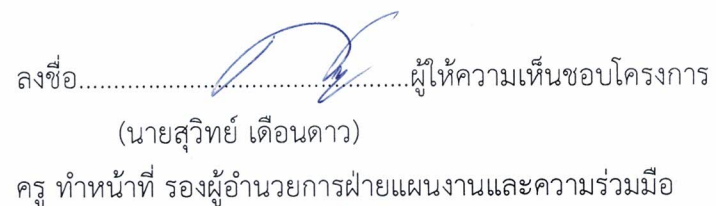 ลงชื่อ................................................ผู้ให้ความเห็นชอบโครงการ
(นายสุวิทย์ เดือนดาว)
ครู ทำหน้าที่ รองผู้อำนวยการฝ่ายแผนงานและความร่วมมือ